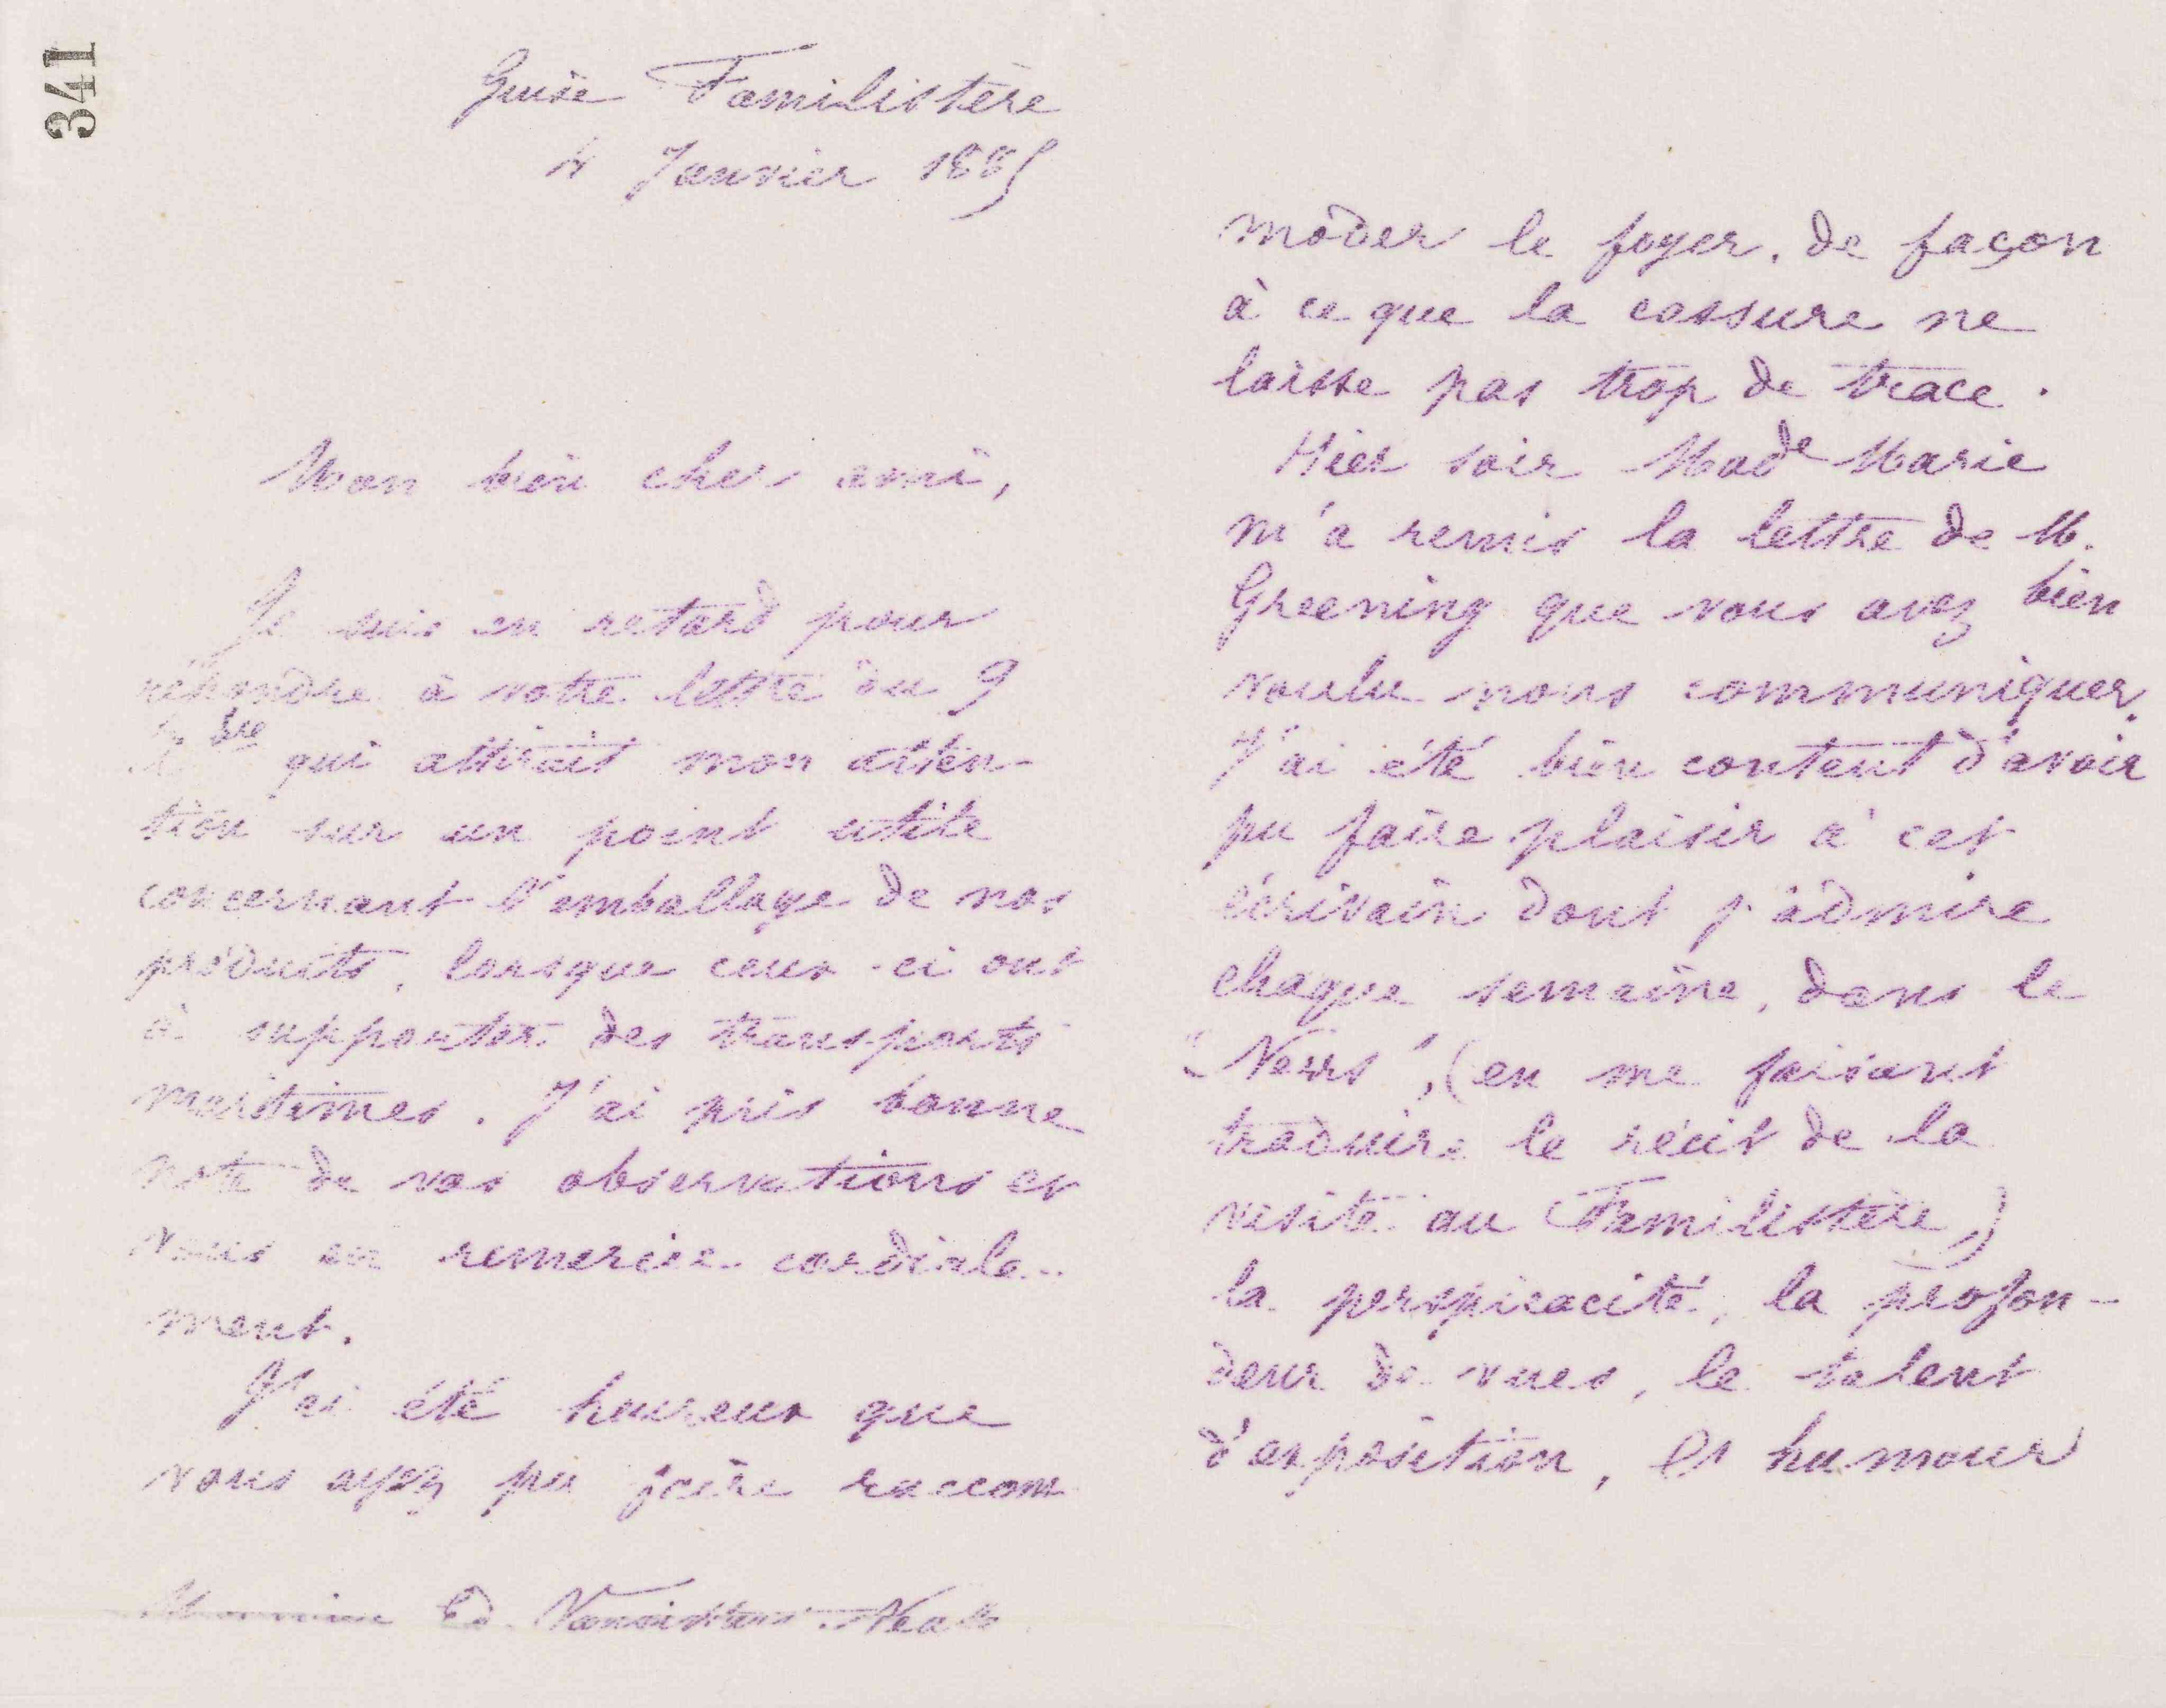 341
Guise Familistère
4 Janvier 1885
Mon bien cher ami,
Je suis en retard pour
répondre à votre lettre du 9
Xbre qui attirait mon atten-
tion sur un point utile
concernant l'emballage de nos
produits, lorsque ceux-ci ont
à supporter des transports
maritimes. J'ai pris bonne
note de vos observations et
vous en remercie cordiale-
ment.
J'ai été heureux que
vous ayez pu faire raccom
Monsieur Ed. Vansittart Neale
moder le foyer, de façon
à ce que la cassure ne
laisse pas trop de trace.
Hier soir Made Marie
m'a remis la lettre de M.
Greening que vous avez bien
voulu nous communiquer.
J'ai été bien content d'avoir
pu faire plaisir à cet
écrivain dont j'admire
chaque semaine, dans le
"News", (en me faisant
traduire le récit de la
visite au Familistère,)
la perspicacité, la profon-
deur de vues, le talent
d'exposition, et humour